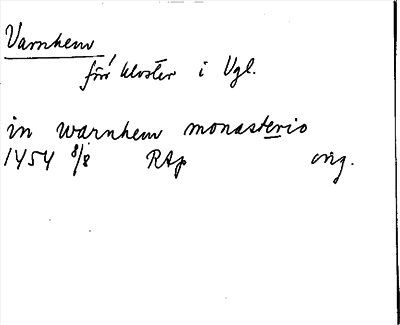 Varnhem
förr kloster i Vgl.
in warnhem monasterio
1454 8/8 RAp orig.